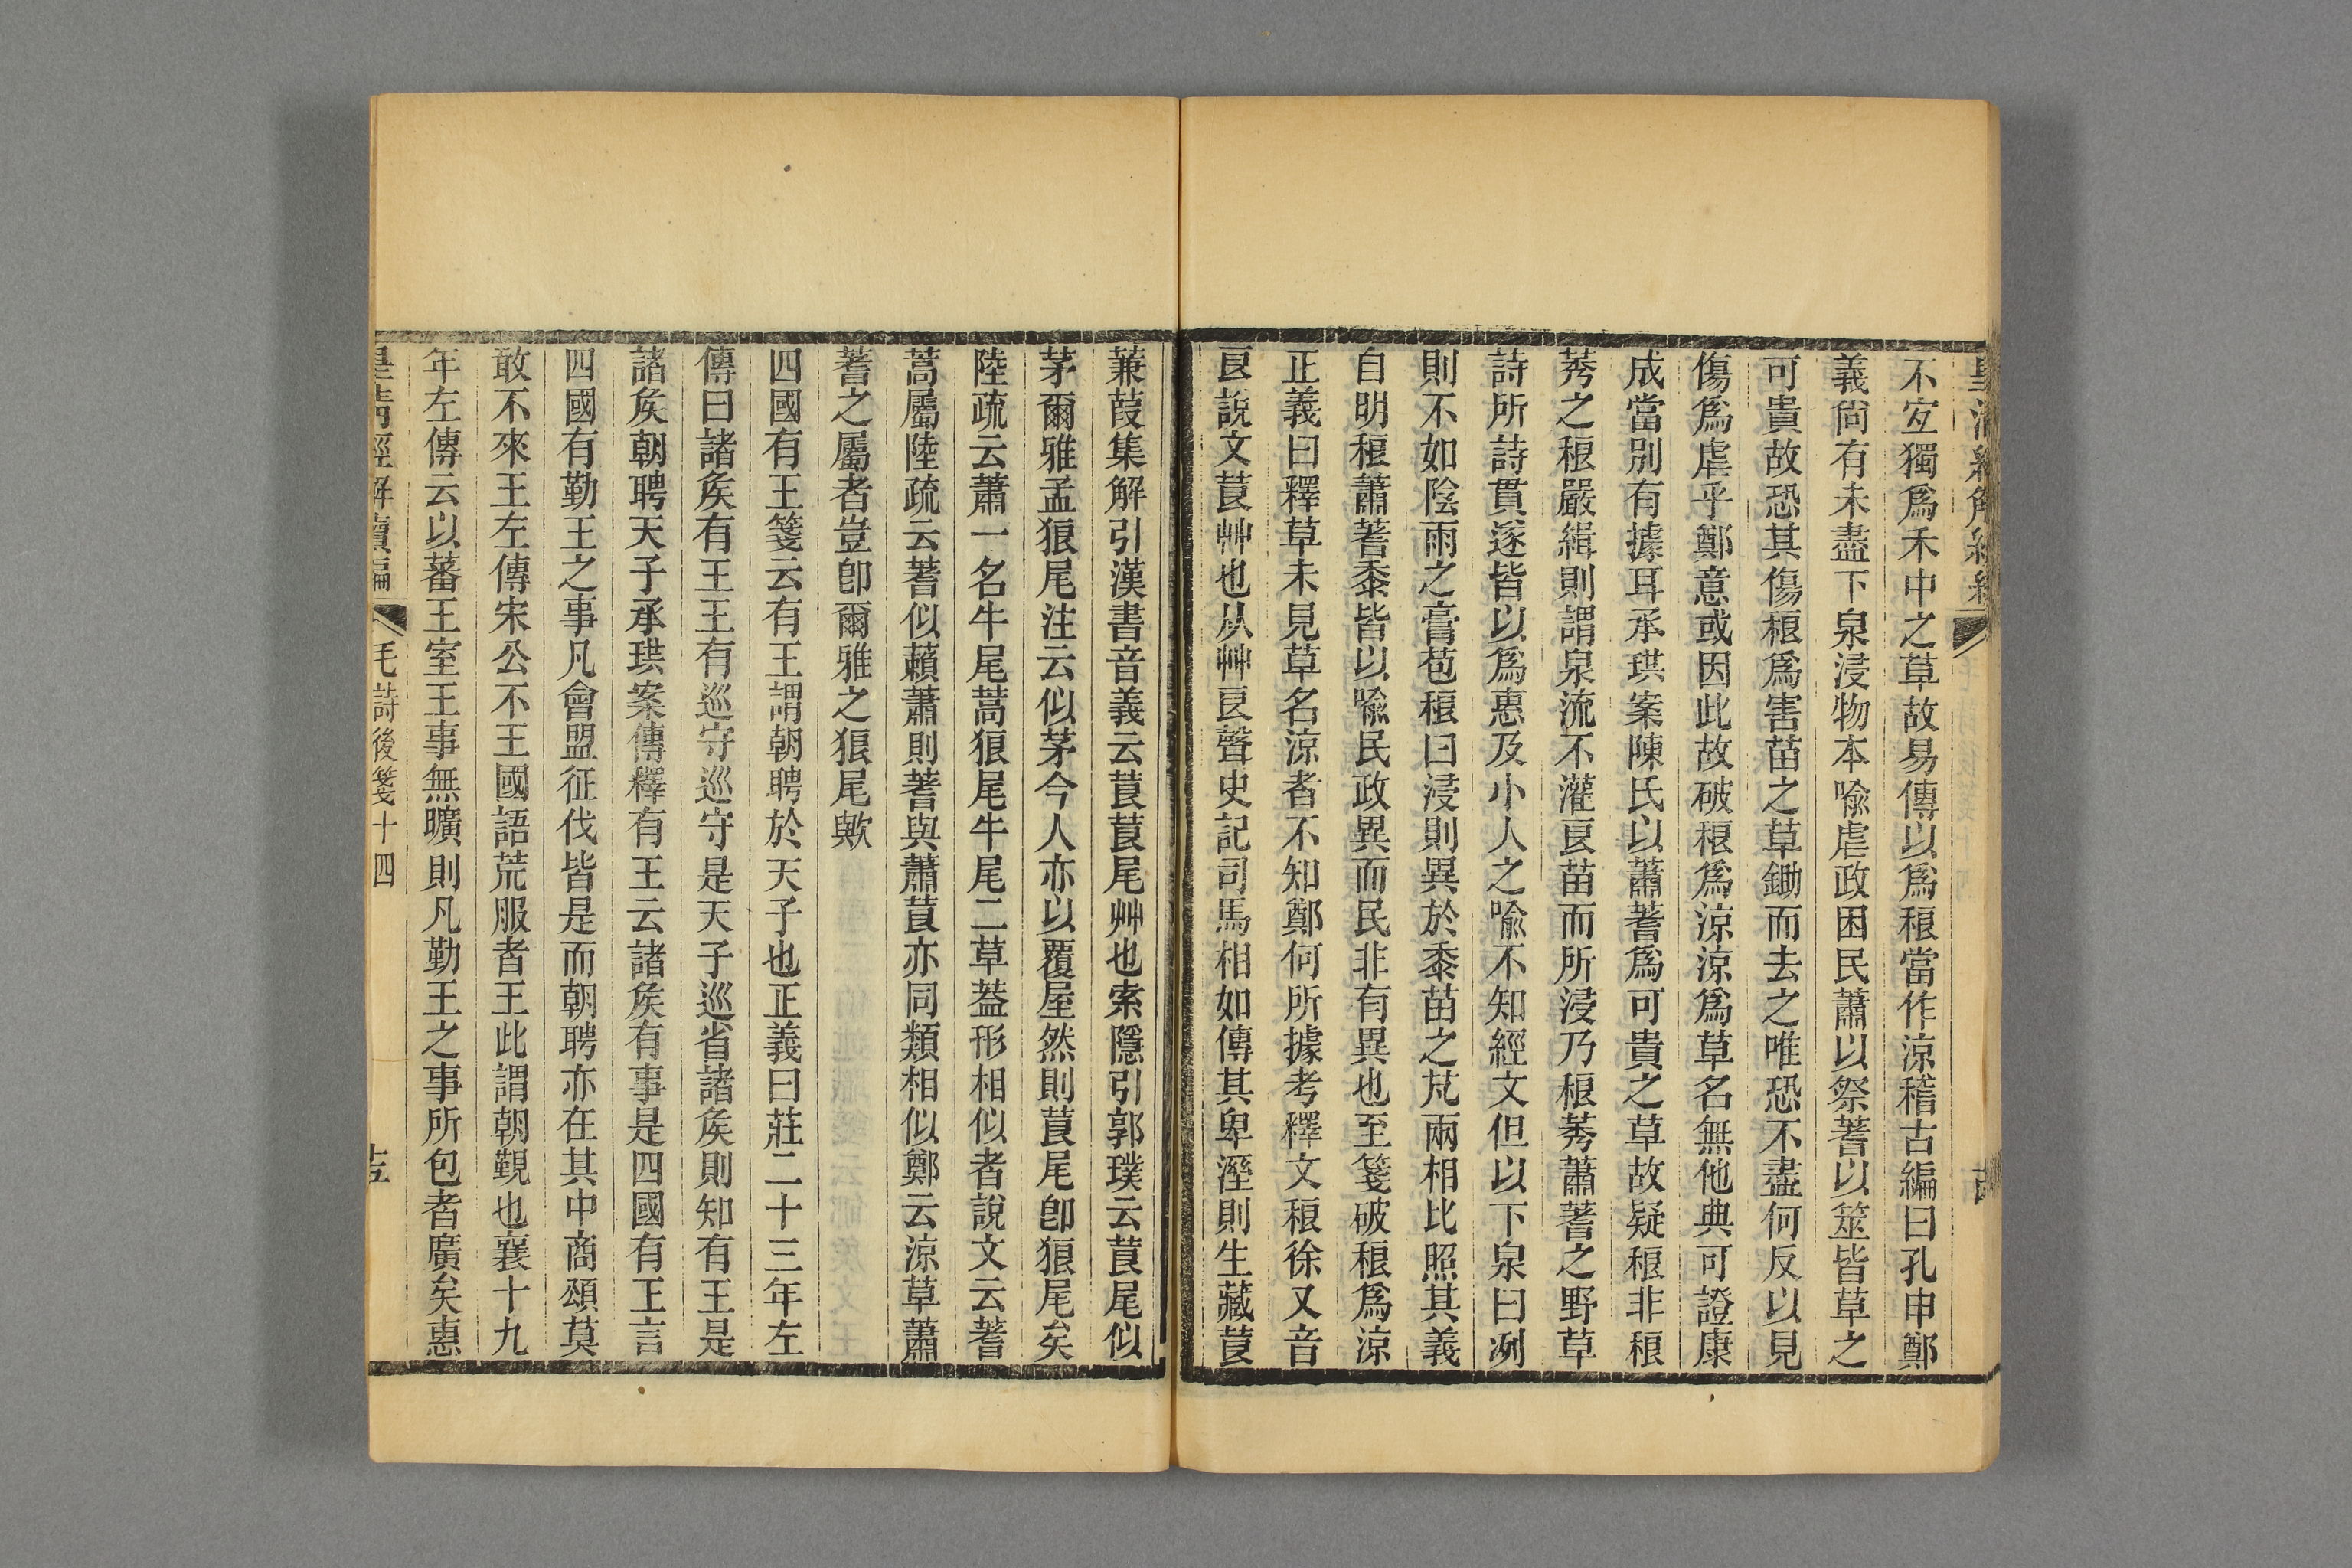 不宐獨爲禾中之草故易傳以爲稂當作涼稽古編曰孔申鄭
義尙有未盡下泉浸物本喻虐政困民蕭以祭蓍以筮皆草之
可貴故恐其傷稂爲害苗之草鋤而去之唯恐不盡何反以見
傷爲虐乎鄭意或因此故破稂爲涼涼爲草名無他典可證康
成當別有據耳承珙案陳氏以蕭蓍爲可貴之草故疑稂非稂
莠之稂嚴緝則謂泉流不灌良苗而所浸乃稂莠蕭蓍之野草
詩所詩貫遂皆以爲惠及小人之喻不知經文但以下泉曰冽
則不如陰雨之膏苞稂曰浸則異於黍苗之芃兩相比照其義
自明稂蕭蓍黍皆以喻民政異而民非有異也至箋破稂爲涼
正義曰釋草未見草名涼者不知鄭何所據考釋文稂徐又音
良說文莨艸也从艸良聲史記司馬相如傳其卑溼則生藏莨
蒹葭集解引漢書音義云莨莨尾艸也索隱引郭璞云莨尾似
茅爾雅孟狼尾注云似茅今人亦以覆屋然則莨尾卽狼尾矣
陸疏云蕭一名牛尾蒿狼尾牛尾二草葢形相似者說文云蓍
蒿屬陸疏云蓍似藾蕭則蓍與蕭莨亦同類相似鄭云涼草蕭
蓍之屬者豈卽爾雅之狼尾歟
四國有王箋云有王謂朝聘於天子也正義曰莊二十三年左
傳曰諸矦有王王有巡守巡守是天子巡省諸矦則知有王是
諸矦朝聘天子承珙案傳釋有王云諸矦有事是四國有王言
四國有勤王之事凡會盟征伐皆是而朝聘亦在其中商頌莫
敢不來王左傳宋公不王國語荒服者王此謂朝覲也襄十九
年左傳云以蕃王室王事無曠則凡勤王之事所包者廣矣惠
皇淸經解續編
毛詩後箋十四
十五